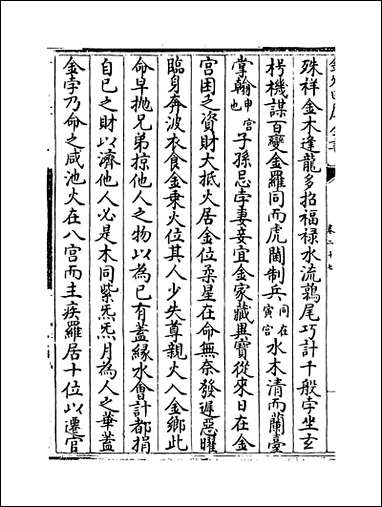 殊祥金木逢龍多招福禄水流鶉尾巧計千般孛坐玄
枵機謀百變金羅同而虎闈制兵同在寅宫水木清而蘭臺
掌翰申宫也子孫忌孛妻妾宜金家藏異寳從來日在金
宫囷之資財大抵火居金位柔星在命無奈發遲惡曜
臨身奔波衣食金乗火位其人少失尊親火入金鄉此
命早抛兄弟掠他人之物以為已有蓋縁水會計都捐
自已之財以濟他人必是木同紫炁炁月為人之華蓋
金孛乃命之咸池火在八宫而主疾羅居十位以遷官